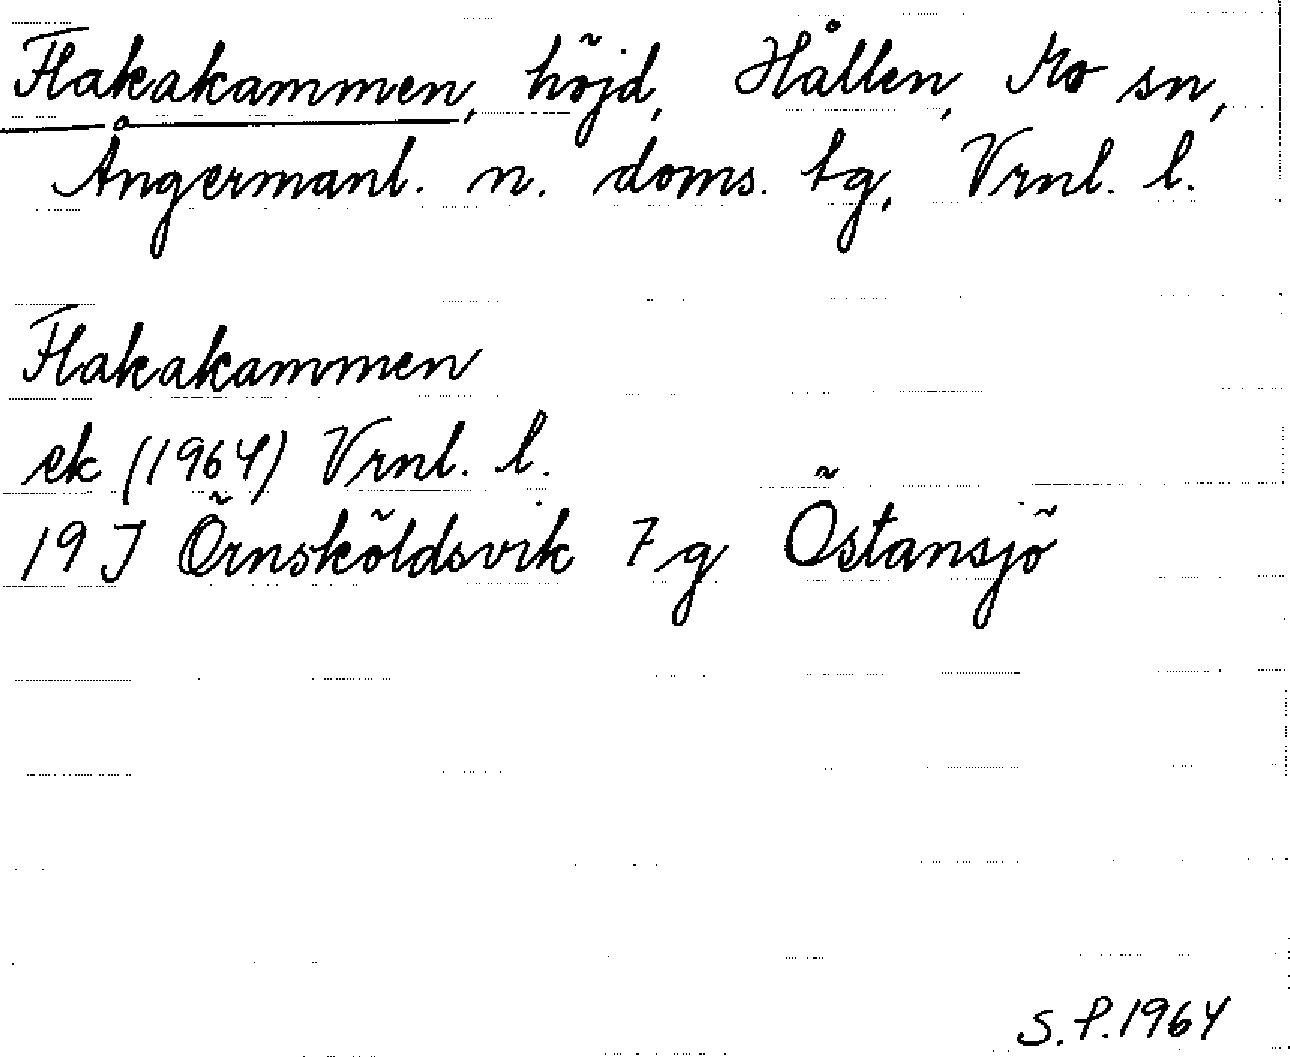 Flakakammen, höjd, Hållen, Mo sn,
Ångermanl. n. doms. tg, Vrnl. l.
Flakakammen
ek (1964) Vrnl. l.
19 J Örnsköldsvik 7 g Östansjö
S. P. 1964